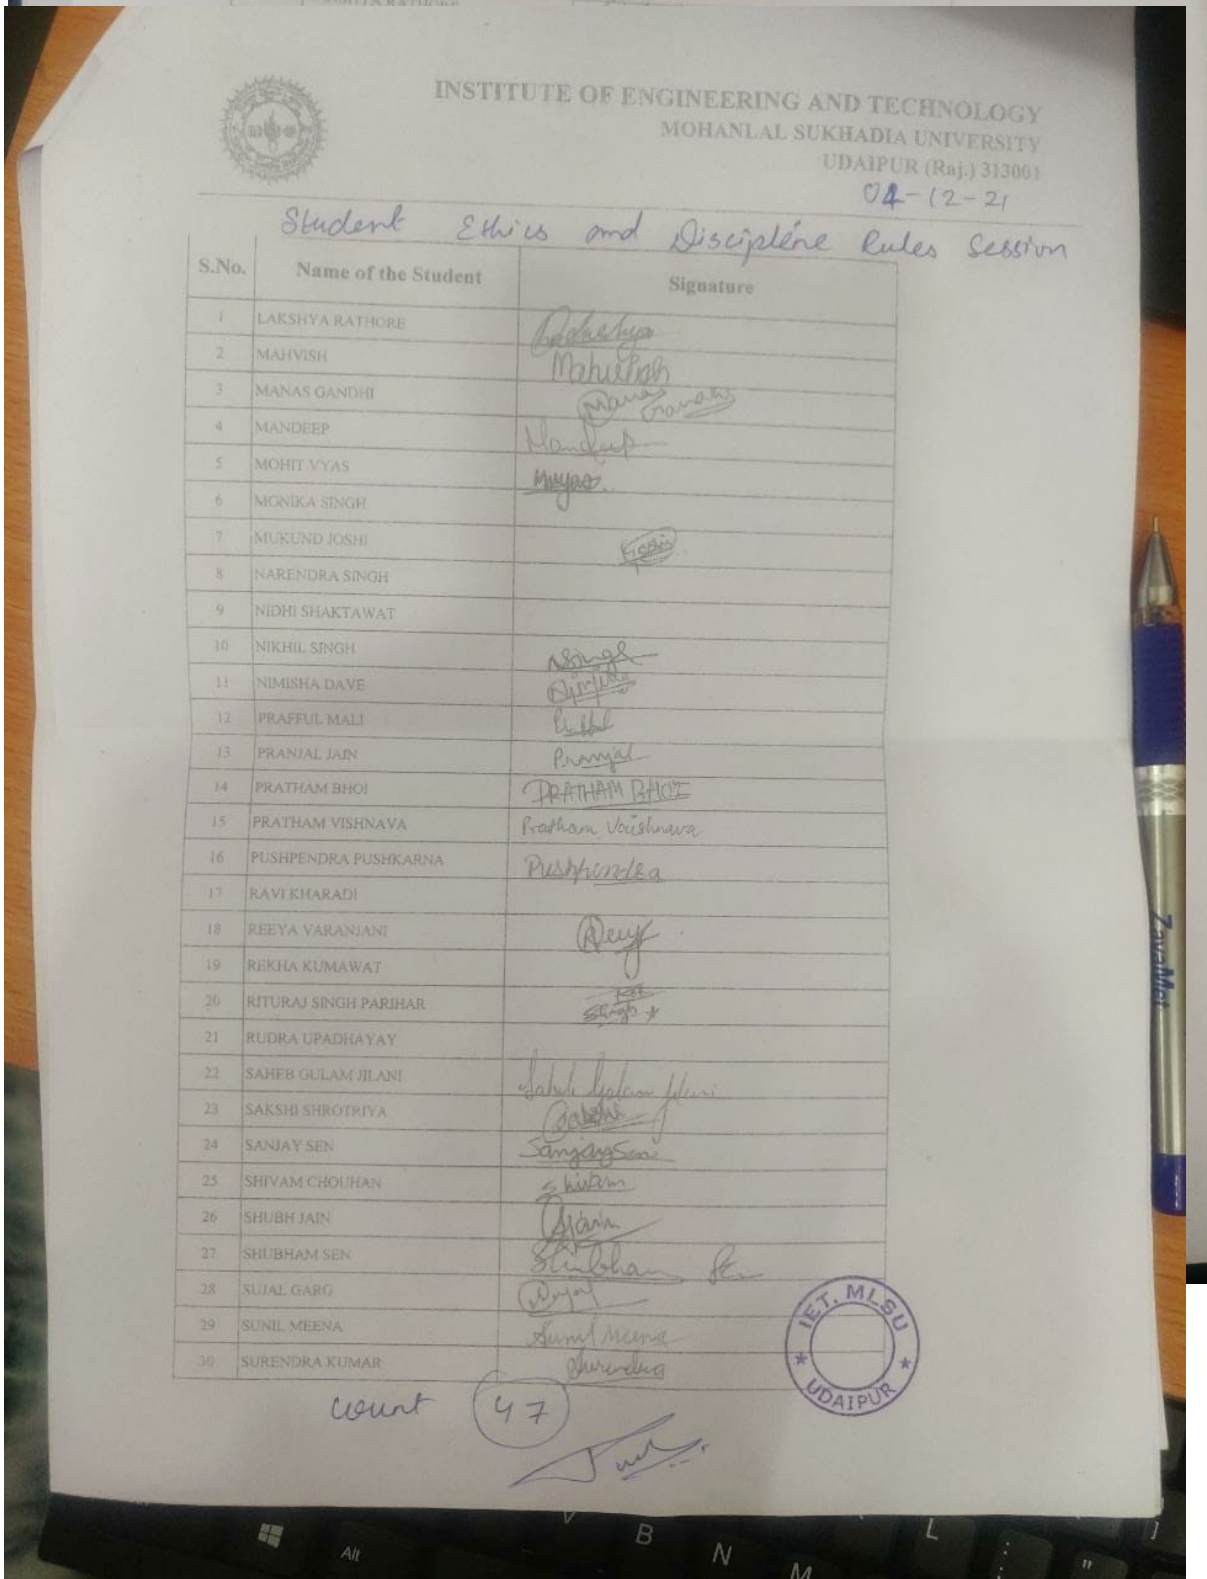 INSTITUTE OF ENGINEERING AND TECHNOLOGY
MOHANLAL SUKHADIA UNIVERSITY
UDAIPUR (Raj.) 313001
04-12-21
Student Ethics and Discipline Rules Session
S.No. Name of the Student Signature
1 LAKSHYA RATHORE Lakshya
2 MAHVISH Mahvish
3 MANAS GANDHI Manas Gandhi
4 MANDEEP Mandeep
5 MOHIT VYAS Mvyas
6 MONIKA SINGH
7 MUKUND JOSHI
8 NARENDRA SINGH
9 NIDHI SHAKTAWAT
10 NIKHIL SINGH NSingh
11 NIMISHA DAVE
12 PRAFFUL MALI
13 PRANJAL JAIN Pranjal
14 PRATHAM BHOI PRATHAM BHOI
15 PRATHAM VISHNAVA Pratham Vaishnava
16 PUSHPENDRA PUSHKARNA Pushpendra
17 RAVI KHARADI
18 REEYA VARANJANI
19 REKHA KUMAWAT
20 RITURAJ SINGH PARIHAR Singh
21 RUDRA UPADHAYAY
22 SAHEB GULAM JILANI Saheb Gulam Jilani
23 SAKSHI SHROTRIYA Sakshi
24 SANJAY SEN Sanjay Sen
25 SHIVAM CHOUHAN Shivam
26 SHUBH JAIN
27 SHUBHAM SEN Shubham Sen
28 SUJAL GARG Sujal
29 SUNIL MEENA Sunil Meena
30 SURENDRA KUMAR Surendra
IET, MLSU
UDAIPUR
count 47
ZavaMet
Alt
V
B
N
M
L